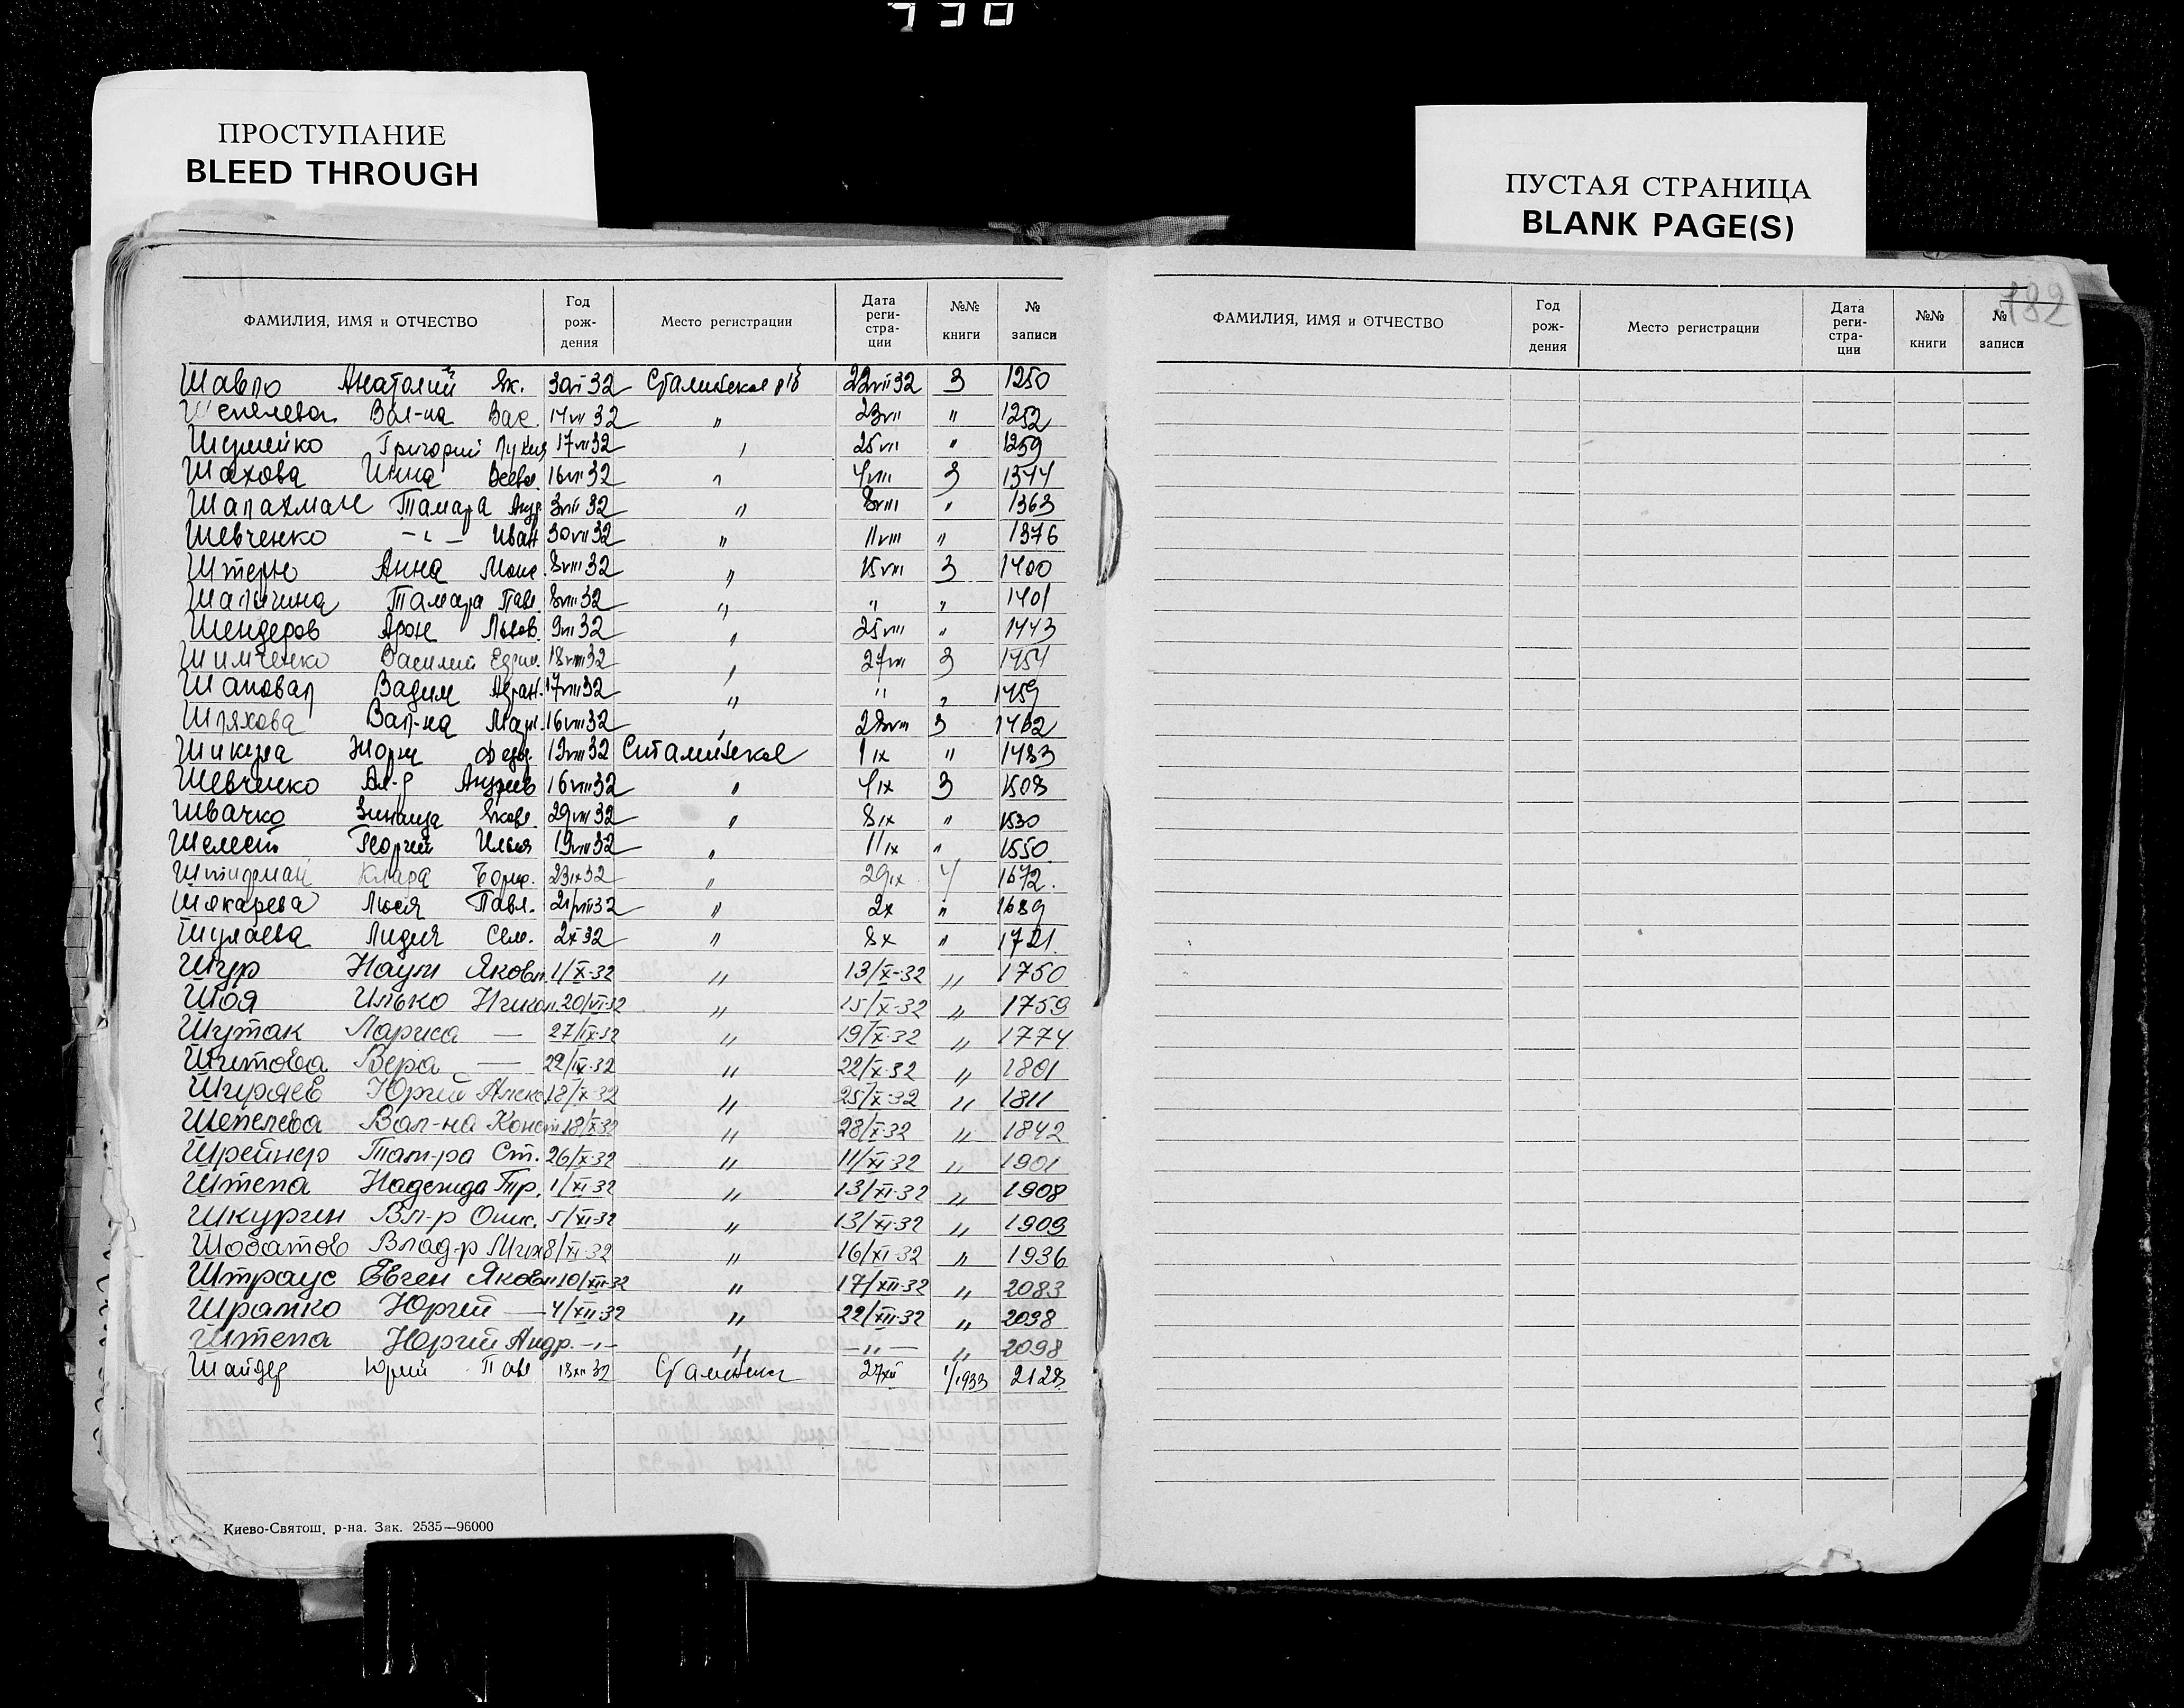 930
ПРОСТУПАНИЕ
BLEED THROUGH
ПУСТАЯ СТРАНИЦА
BLANK PAGE(S)
182
ФАМИЛИЯ, ИМЯ и ОТЧЕСТВО Год рож- дения Место регистрации Дата реги- стра- ции №№ книги № записи
Шавло Анатолий Як. 30 VI 32 Сталинское 22 VII 32 3 1250
Шепелева Вал-на Вас. 14 VII 32 " 23 VII " 1252
Шумейко Григорий 17 VII 32 " 25 VII " 1259
Шахова Инна Всев. 16 VII 32 " 4 VIII 3 1344
Шалахман Тамара Анд. 3 VIII 32 " 8 VIII " 1363
Шевченко Иван 30 VII 32 " 11 VIII " 1376
Штерн Анна Моис. 8 VIII 32 " 15 VIII 3 1400
Шалыгина Тамара Павл. 8 VIII 32 " " " 1401
Шендеров Арон Львов. 9 VIII 32 " 25 VIII " 1443
Шимченко Василий 18 VIII 32 " 27 VIII 3 1454
Шаповал Вадим 17 VIII 32 " " " 1459
Шляхова Вал-на 16 VIII 32 " 28 VIII 3 1462
Шикула Жорж Федор. 19 VIII 32 Сталинское 1 IX " 1483
Шевченко Ал-р Андреев 16 VIII 32 " 4 IX 3 1508
Швачко Зинаида Яковл. 29 VIII 32 " 8 IX " 1530
Шелест Георгий Ильич 19 VIII 32 " 11 IX " 1550
Клара Борис. 23 IX 32 " 29 IX 4 1672.
Шкарева Люся Павл. 21/VIII 32 " 2 X " 1689
Шулаева Лидия Сем. 2 X 32 " 8 X " 1721.
Шур Наум Яковл. 1/X-32 " 13/X-32 " 1750
Шоя Илько Никол. 20/VI-32 " 15/X-32 " 1759
Шутак Лариса — 27/IX-32 " 19/X-32 " 1774
Шитова Вера — 22/IX-32 " 22/X-32 " 1801
Шуряев Юрий Алекс. 12/X-32 " 25/X-32 " 1811
Шепелева Вал-на Конст 18/X-32 " 28/X-32 " 1842
Шрейнер Там-ра Ст. 26/X-32 " 11/XI-32 " 1901
Штепа Надежда Гр. 1/XI-32 " 13/XI-32 " 1908
Шкурин Вл-р Оник. 5/XI-32 " 13/XI-32 " 1909
Влад-р Мих 8/XI-32 " 16/XI-32 " 1936
Штраус Евген Яковл 10/XII-32 " 17/XII-32 " 2083
Шрамко Юрий — 4/XII-32 " 22/XII-32 " 2098
Штепа Юрий Андр. -"- " -"- " 2098
Шайдер Юрий Павл 13 XII 32 Сталинск 27 XII 1/1933 2128
Киево-Святош. р-на. Зак. 2535—96000
ФАМИЛИЯ, ИМЯ и ОТЧЕСТВО Год рож- дения Место регистрации Дата реги- стра- ции №№ книги № записи